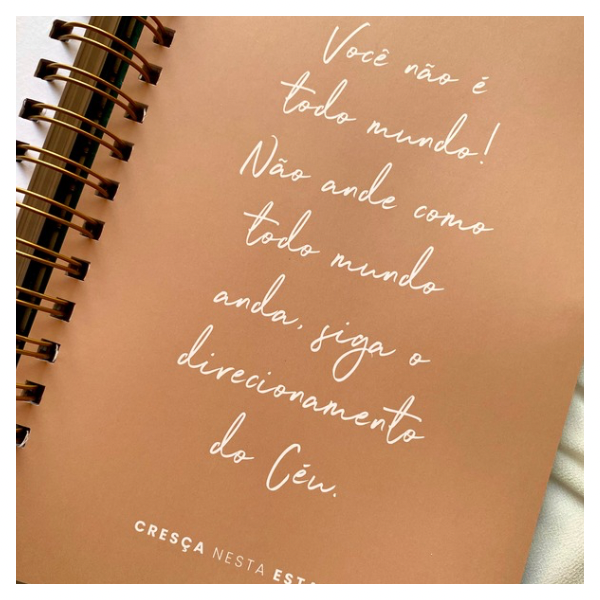 Você não é
todo mundo!
Não ande como
todo mundo
anda, siga o
direcionamento
do Céu.
CRESÇA NESTA